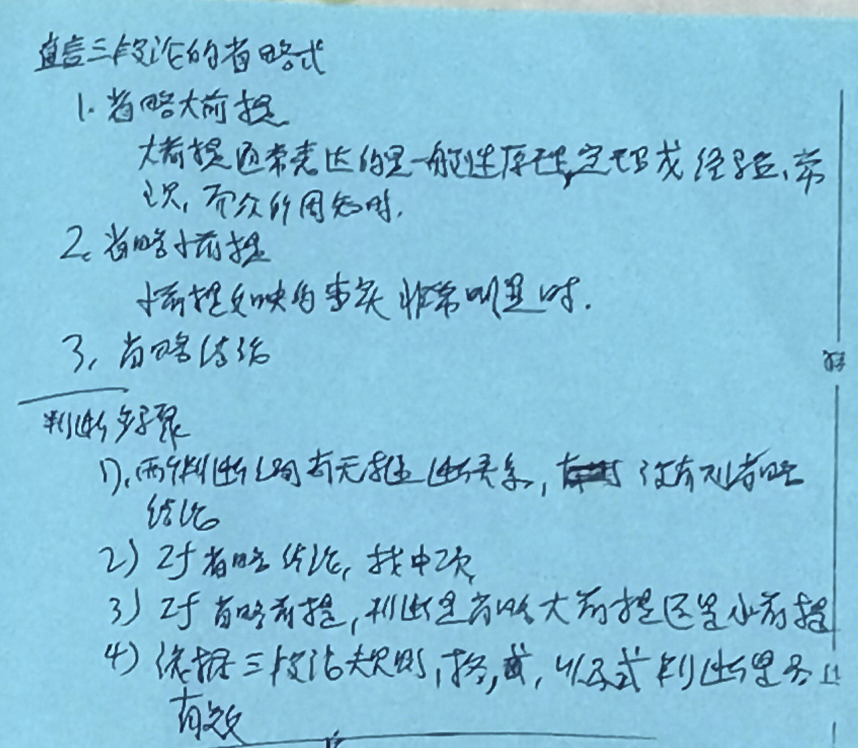 直言三段论的省略式
1. 省略大前提
大前提通常表达的是一般性原理,定理或经验、常
识, 而众所周知时.
2. 省略小前提
小前提反映的事实非常明显时.
3. 省略结论
判断步骤
1). 两个判断之间有无推断关系, 没有则省略
结论
2) 对省略结论, 找中项
3) 对省略前提, 判断是省略大前提还是小前提
4) 依据三段论规则, 格, 式判断是否
有效